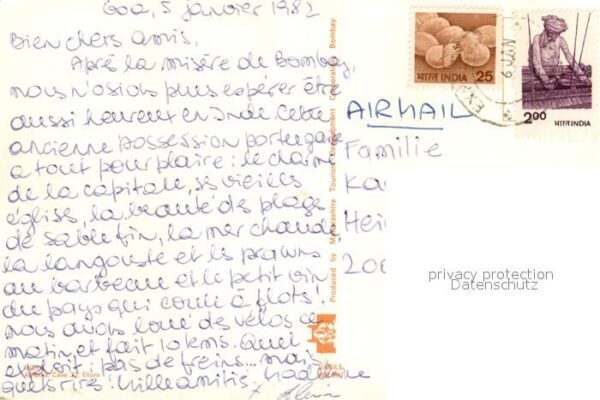 Goa, 5 janvier 1982
Bien chers amis,
Après la misère de Bombay,
nous n'osions plus espérer être
aussi heureux en Inde. Cette
ancienne possession portugaise
a tout pour plaire : le charme
de la capitale, ses vieilles
églises, la beauté des plages
de sable fin, la mer chaude,
la langouste et les prawns
au barbecue et le petit vin
du pays qui coule à flots!
nous avons loué des vélos ce
matin, et fait 10 kms. Quel
exploit : pas de freins... mais
quels rires! Mille amitiés
भारत INDIA 25
6 JAN
2.00
भारत INDIA
AIRMAIL
Familie
Ka
Hei
206
privacy protection
Datenschutz
Produced by Maharashtra Tourism Development Corporation Bombay
Cave Ellora